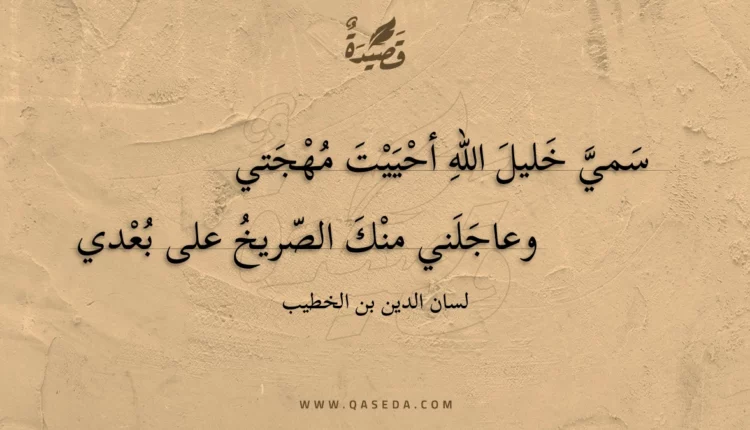 قَصِيْدَةٌ
سَميَّ خَليلَ اللهِ أحْيَيْتَ مُهْجَتي
وعاجَلَني منْكَ الصّريخُ على بُعْدي
لسان الدين بن الخطيب
WWW.QASEDA.COM